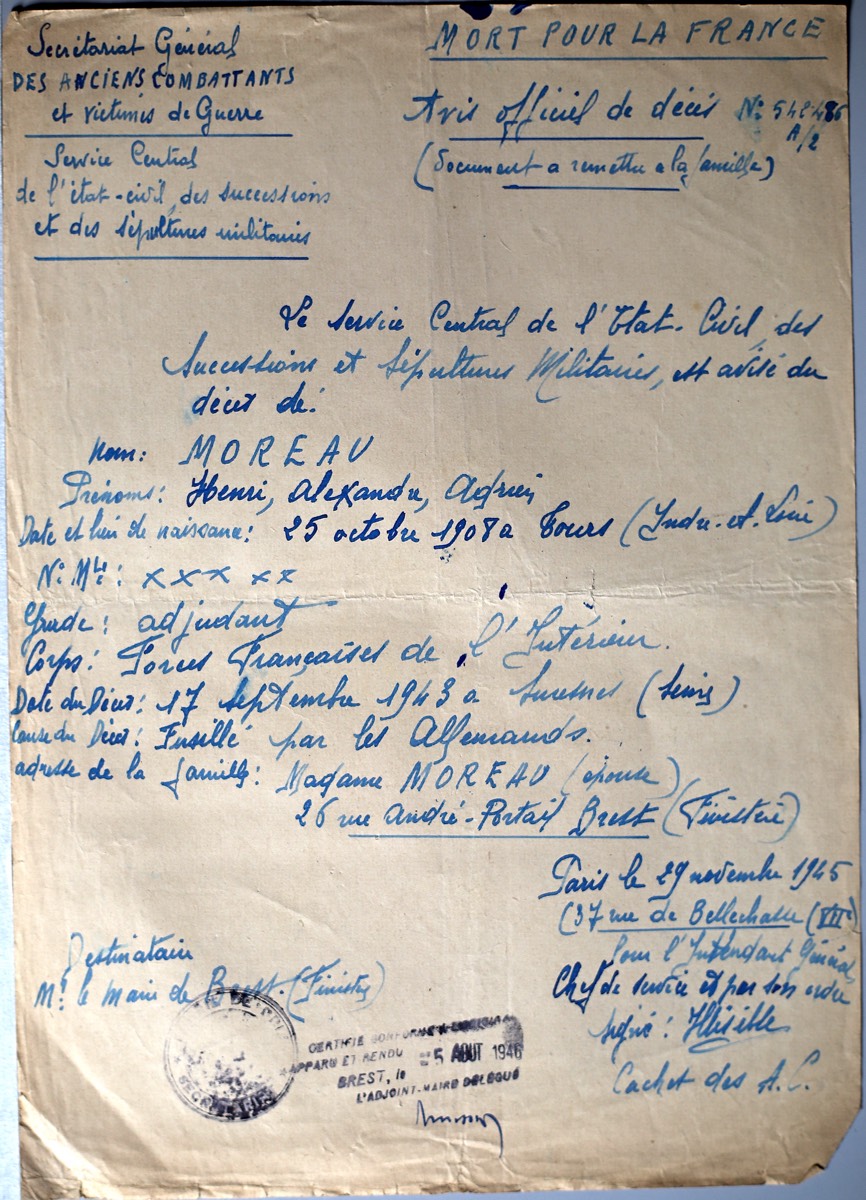 Secrétariat Général
DES ANCIENS COMBATTANTS
et victimes de Guerre
Service Central
de l'état-civil, des successions
et des sépultures militaires
MORT POUR LA FRANCE
Avis officiel de décès N°: 542486
A/2
(Document a remettre a la famille)
Le Service Central de l'Etat-Civil, des
Successions et Sépultures Militaires, est avisé du
décès de:
Nom: MOREAU
Prénoms: Henri, Alexandre, Adrien
Date et lieu de naissance: 25 octobre 1908 a Tours (Indre-et-Loire)
N° Mle: x x x x x
Grade: adjudant
Corps: Forces Françaises de l'Intérieur.
Date du Décès: 17 Septembre 1943 a Suresnes (Seine)
Cause du Décès: Fusillé par les Allemands.
adresse de la famille: Madame MOREAU (épouse)
26 rue André-Portail Brest (Finistère)
Paris le 29 novembre 1945
(37 rue de Bellechasse (VIIe)
Pour l'Intendant Général,
Chef de service et par son ordre
signé: Illisible
Cachet des A.C.
Destinataire
Mr. le Maire de Brest. (Finistère)
CERTIFIÉ CONFORME A L'ORIGINAL
APPARU ET RENDU
BREST, le 5 AOUT 1946
L'ADJOINT-MAIRE DÉLÉGUÉ